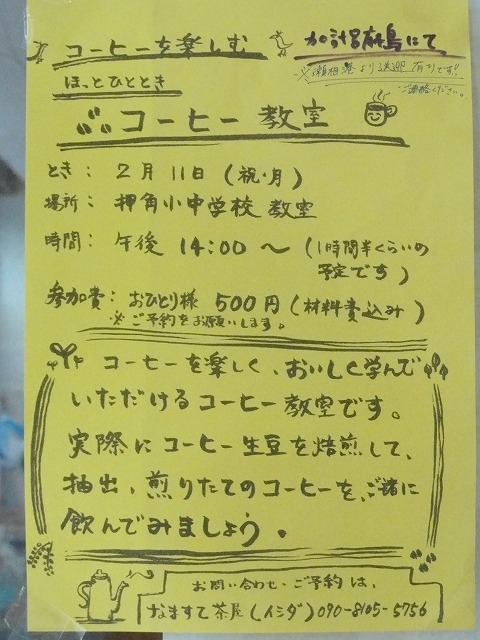 コーヒーを楽しむ
加計呂麻島にて
※瀬相港より送迎有りです!!
ご連絡ください。
ほっとひととき
コーヒー教室
とき: 2月11日(祝・月)
場所: 押角小中学校 教室
時間: 午後 14:00〜(1時間半くらいの
予定です)
参加費: おひとり様 500円(材料費込み)
※ご予約をお願いします。
コーヒーを楽しく、おいしく学んで
いただけるコーヒー教室です。
実際にコーヒー生豆を焙煎して、
抽出、煎りたてのコーヒーを、ご一緒に
飲んでみましょう。
お問い合わせ・ご予約は、
なますて茶屋(イシダ)090-8105-5756